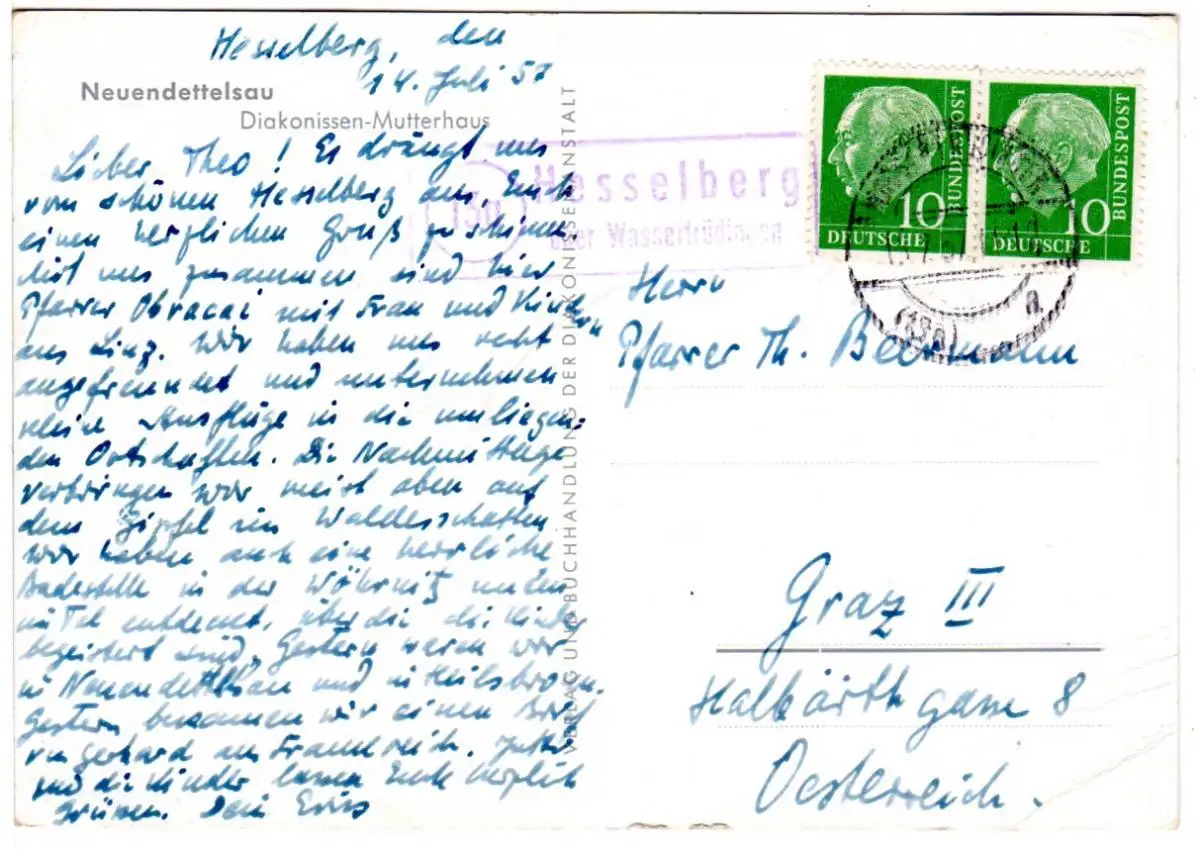 Hesselberg, den
14. Juli 57
Neuendettelsau
Diakonissen-Mutterhaus
Lieber Theo! Es drängt uns
vom schönen Hesselberg aus, Euch
einen herzlichen Gruß zu schicken.
Mit uns zusammen sind hier
Pfarrer mit Frau und Kindern
aus Linz. Wir haben uns recht
angefreundet und unternehmen
kleine Ausflüge in die umliegen-
den Ortschaften. Die Nachmittage
verbringen wir meist oben auf
dem Gipfel im Waldesschatten
Wir haben auch eine herrliche
Badestelle in der Wörnitz unten
im Tal entdeckt, über die die Kinder
begeistert sind. Gestern waren wir
in Neuendettelsau und in Heilsbronn.
Gestern bekamen wir einen Brief
von Gerhard aus Frankreich.
und die Kinder lassen Euch herzlich
Grüßen. Dein
VERLAG UND BUCHHANDLUNG DER DIAKONISSENANSTALT
(13a) Hesselberg
über Wassertrüdingen
10 BUNDESPOST
DEUTSCHE
10 BUNDESPOST
DEUTSCHE
(13a) a
Herrn
Pfarrer Th. Beermann
Graz III
Halbärthgasse 8
Oesterreich.